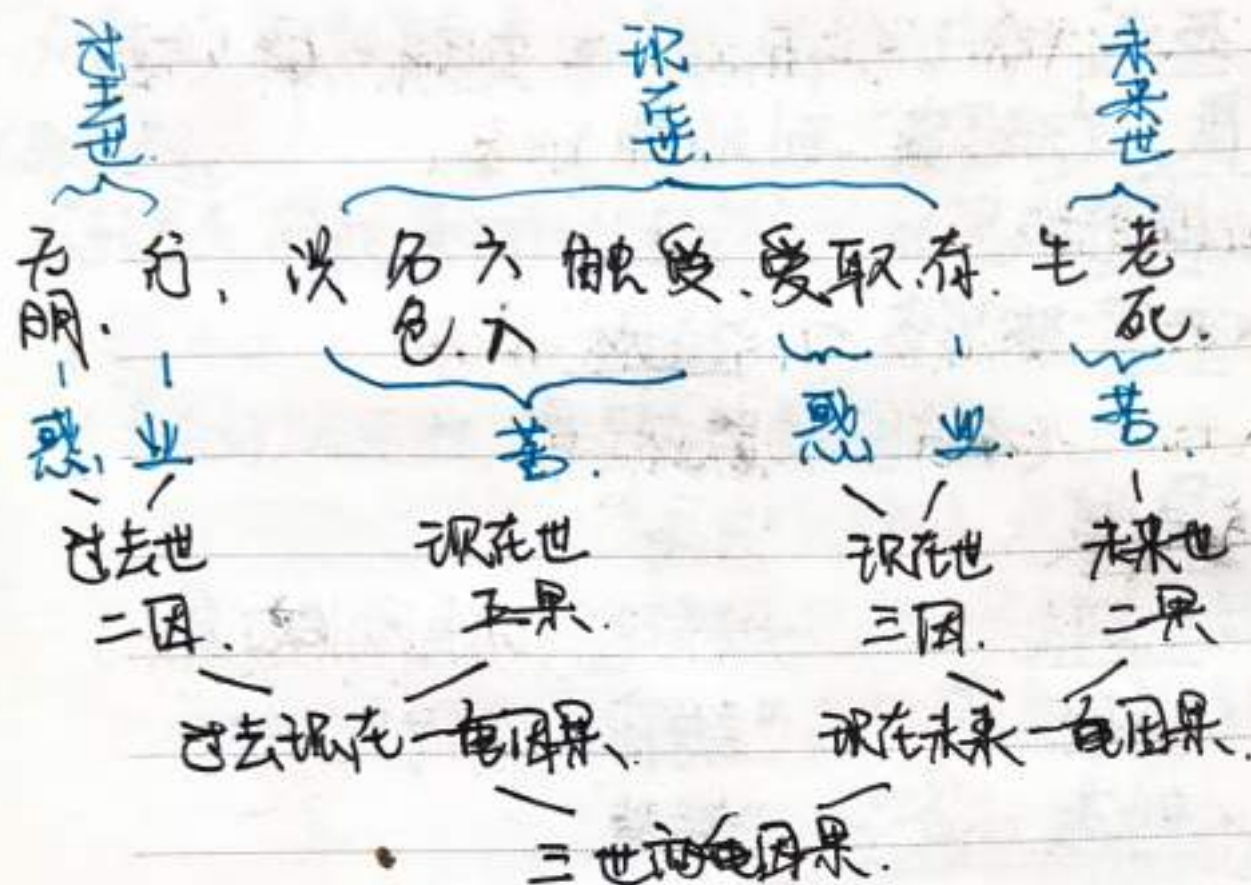 过去世 现在世 未来世
无明. 行、识 名色. 六入 触 受、爱、取、有. 生 老死.
惑 业 苦. 惑 业. 苦.
过去世 现在世 现在世 未来世
二因. 五果. 三因. 二果
过去现在一重因果、 现在未来一重因果.
三世两重因果.